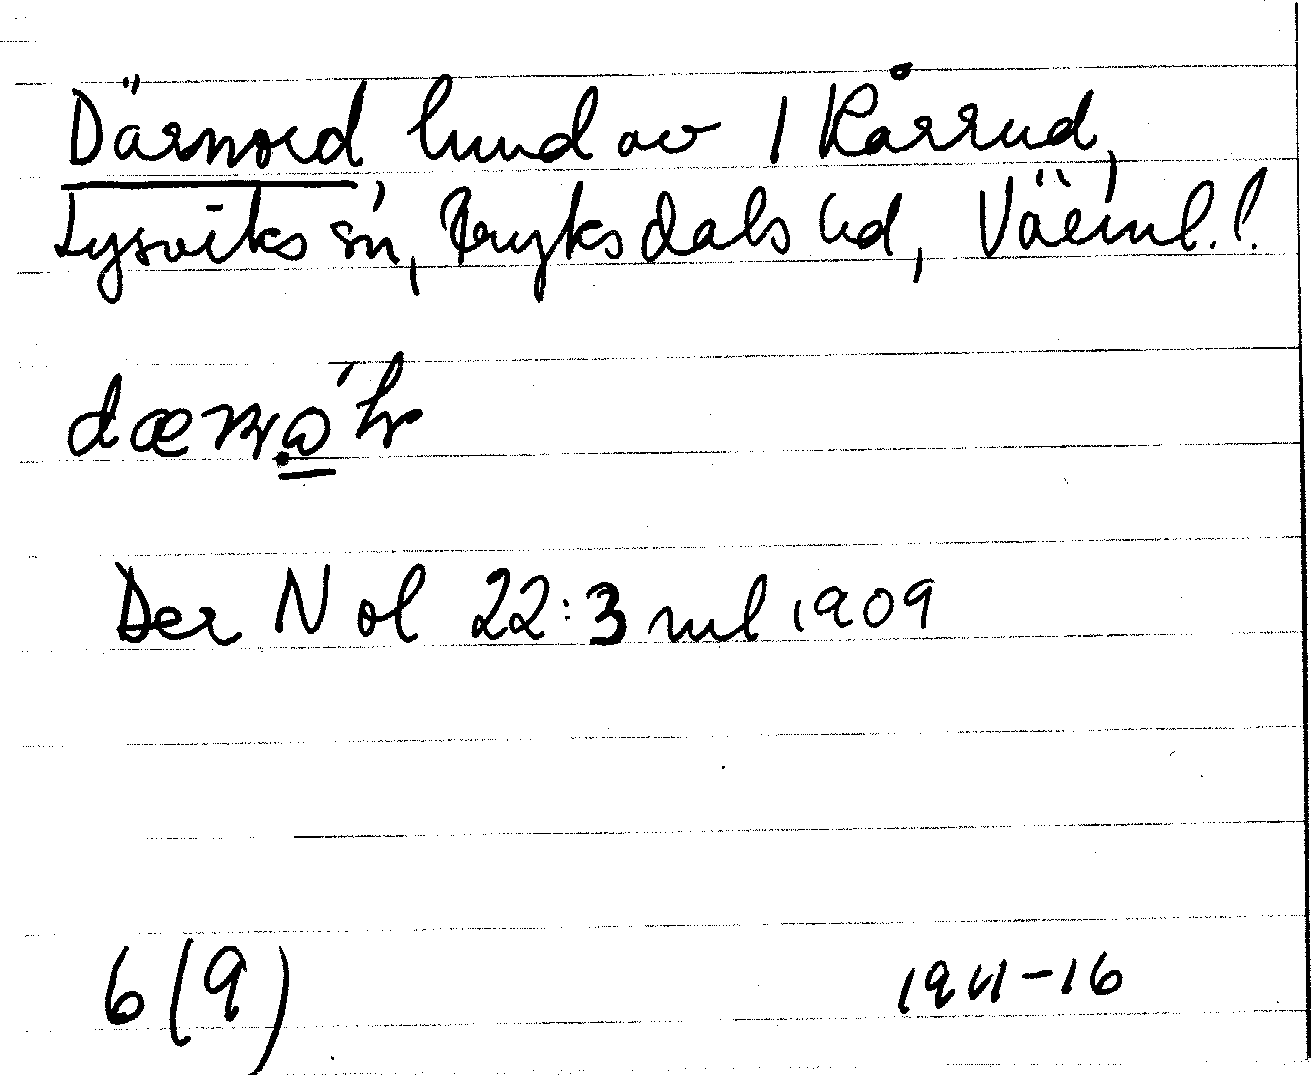 Därnord hmd av 1 Kårrud,
Lysviks sn, Fryksdals hd, Värml. l.
Der N ol 22:3 ml 1909
6(9) 1911-16